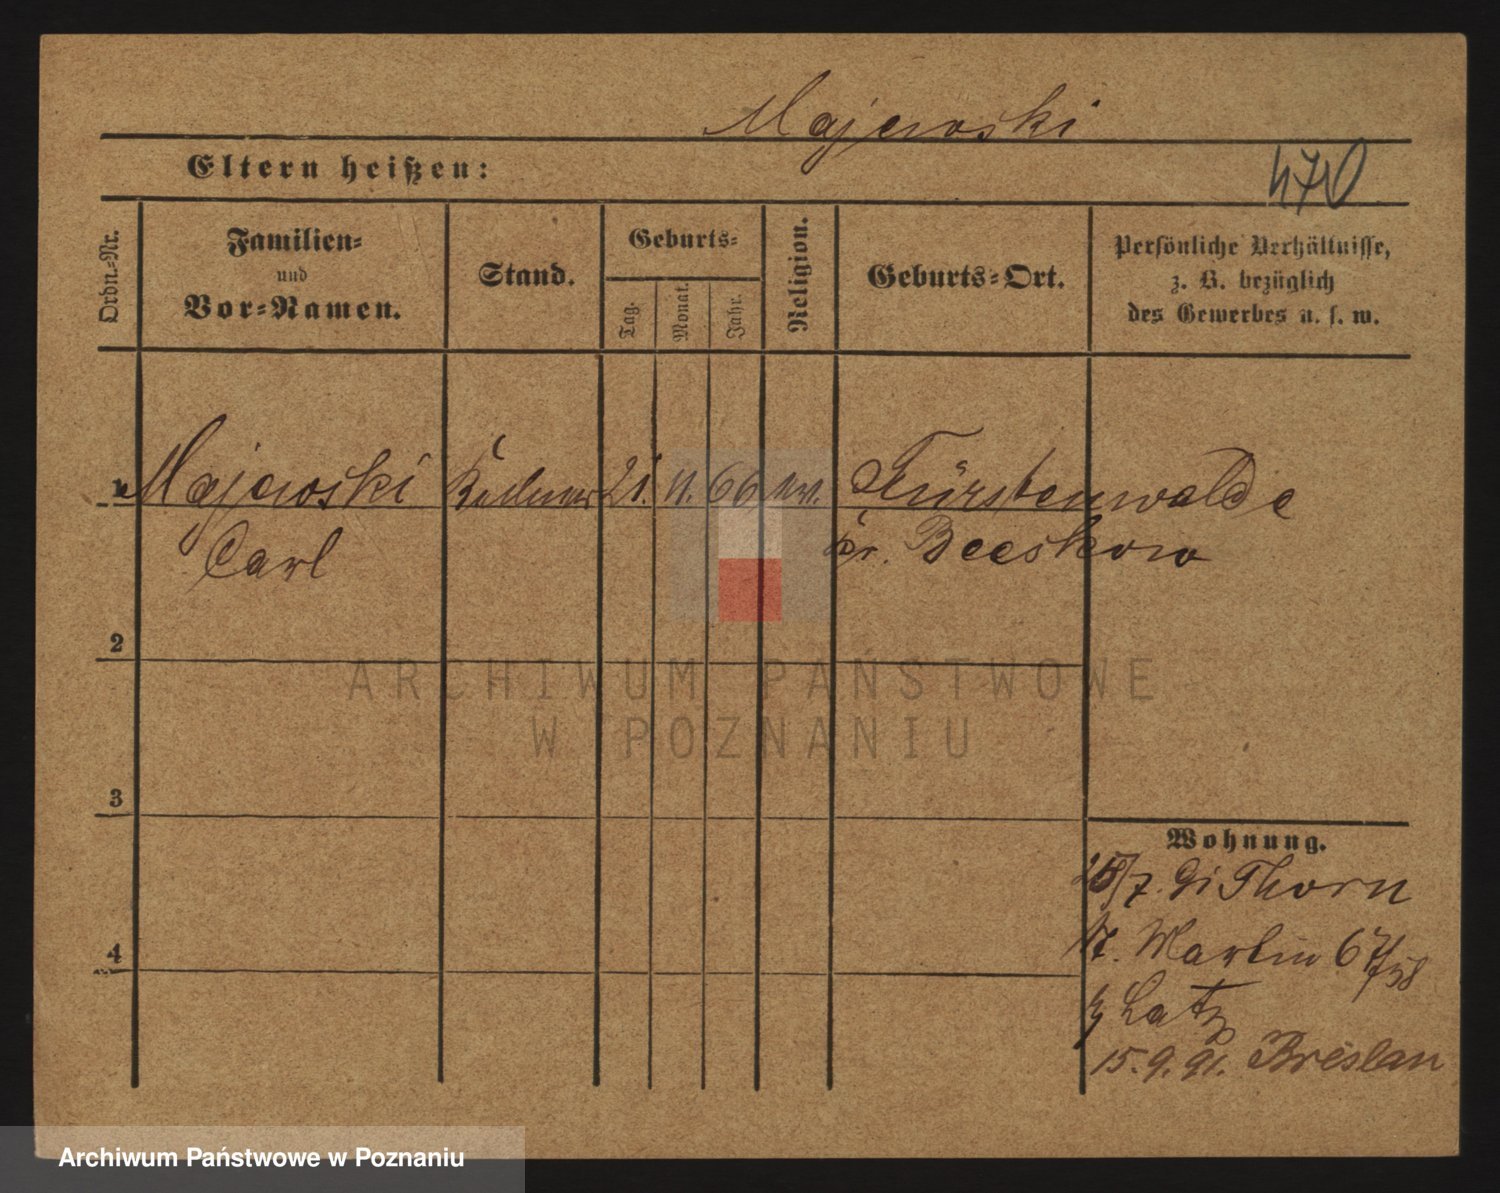 Majewski
Eltern heißen:
470
Ordn.-Nr.
Familien-
und
Vor-Namen.
Stand.
Geburts-
Tag.
Monat.
Jahr.
Religion.
Geburts-Ort.
Persönliche Verhältnisse,
z. B. bezüglich
des Gewerbes u. s. w.
Majewski 21. 11. 66 Fürstenwalde
Carl Kr. Beeskow
2
ARCHIWUM PAŃSTWOWE
W POZNANIU
3
Wohnung.
25/7. 91 Thorn
Martin 67
4
b/ Latz
15.9.91. Breslau
Archiwum Państwowe w Poznaniu